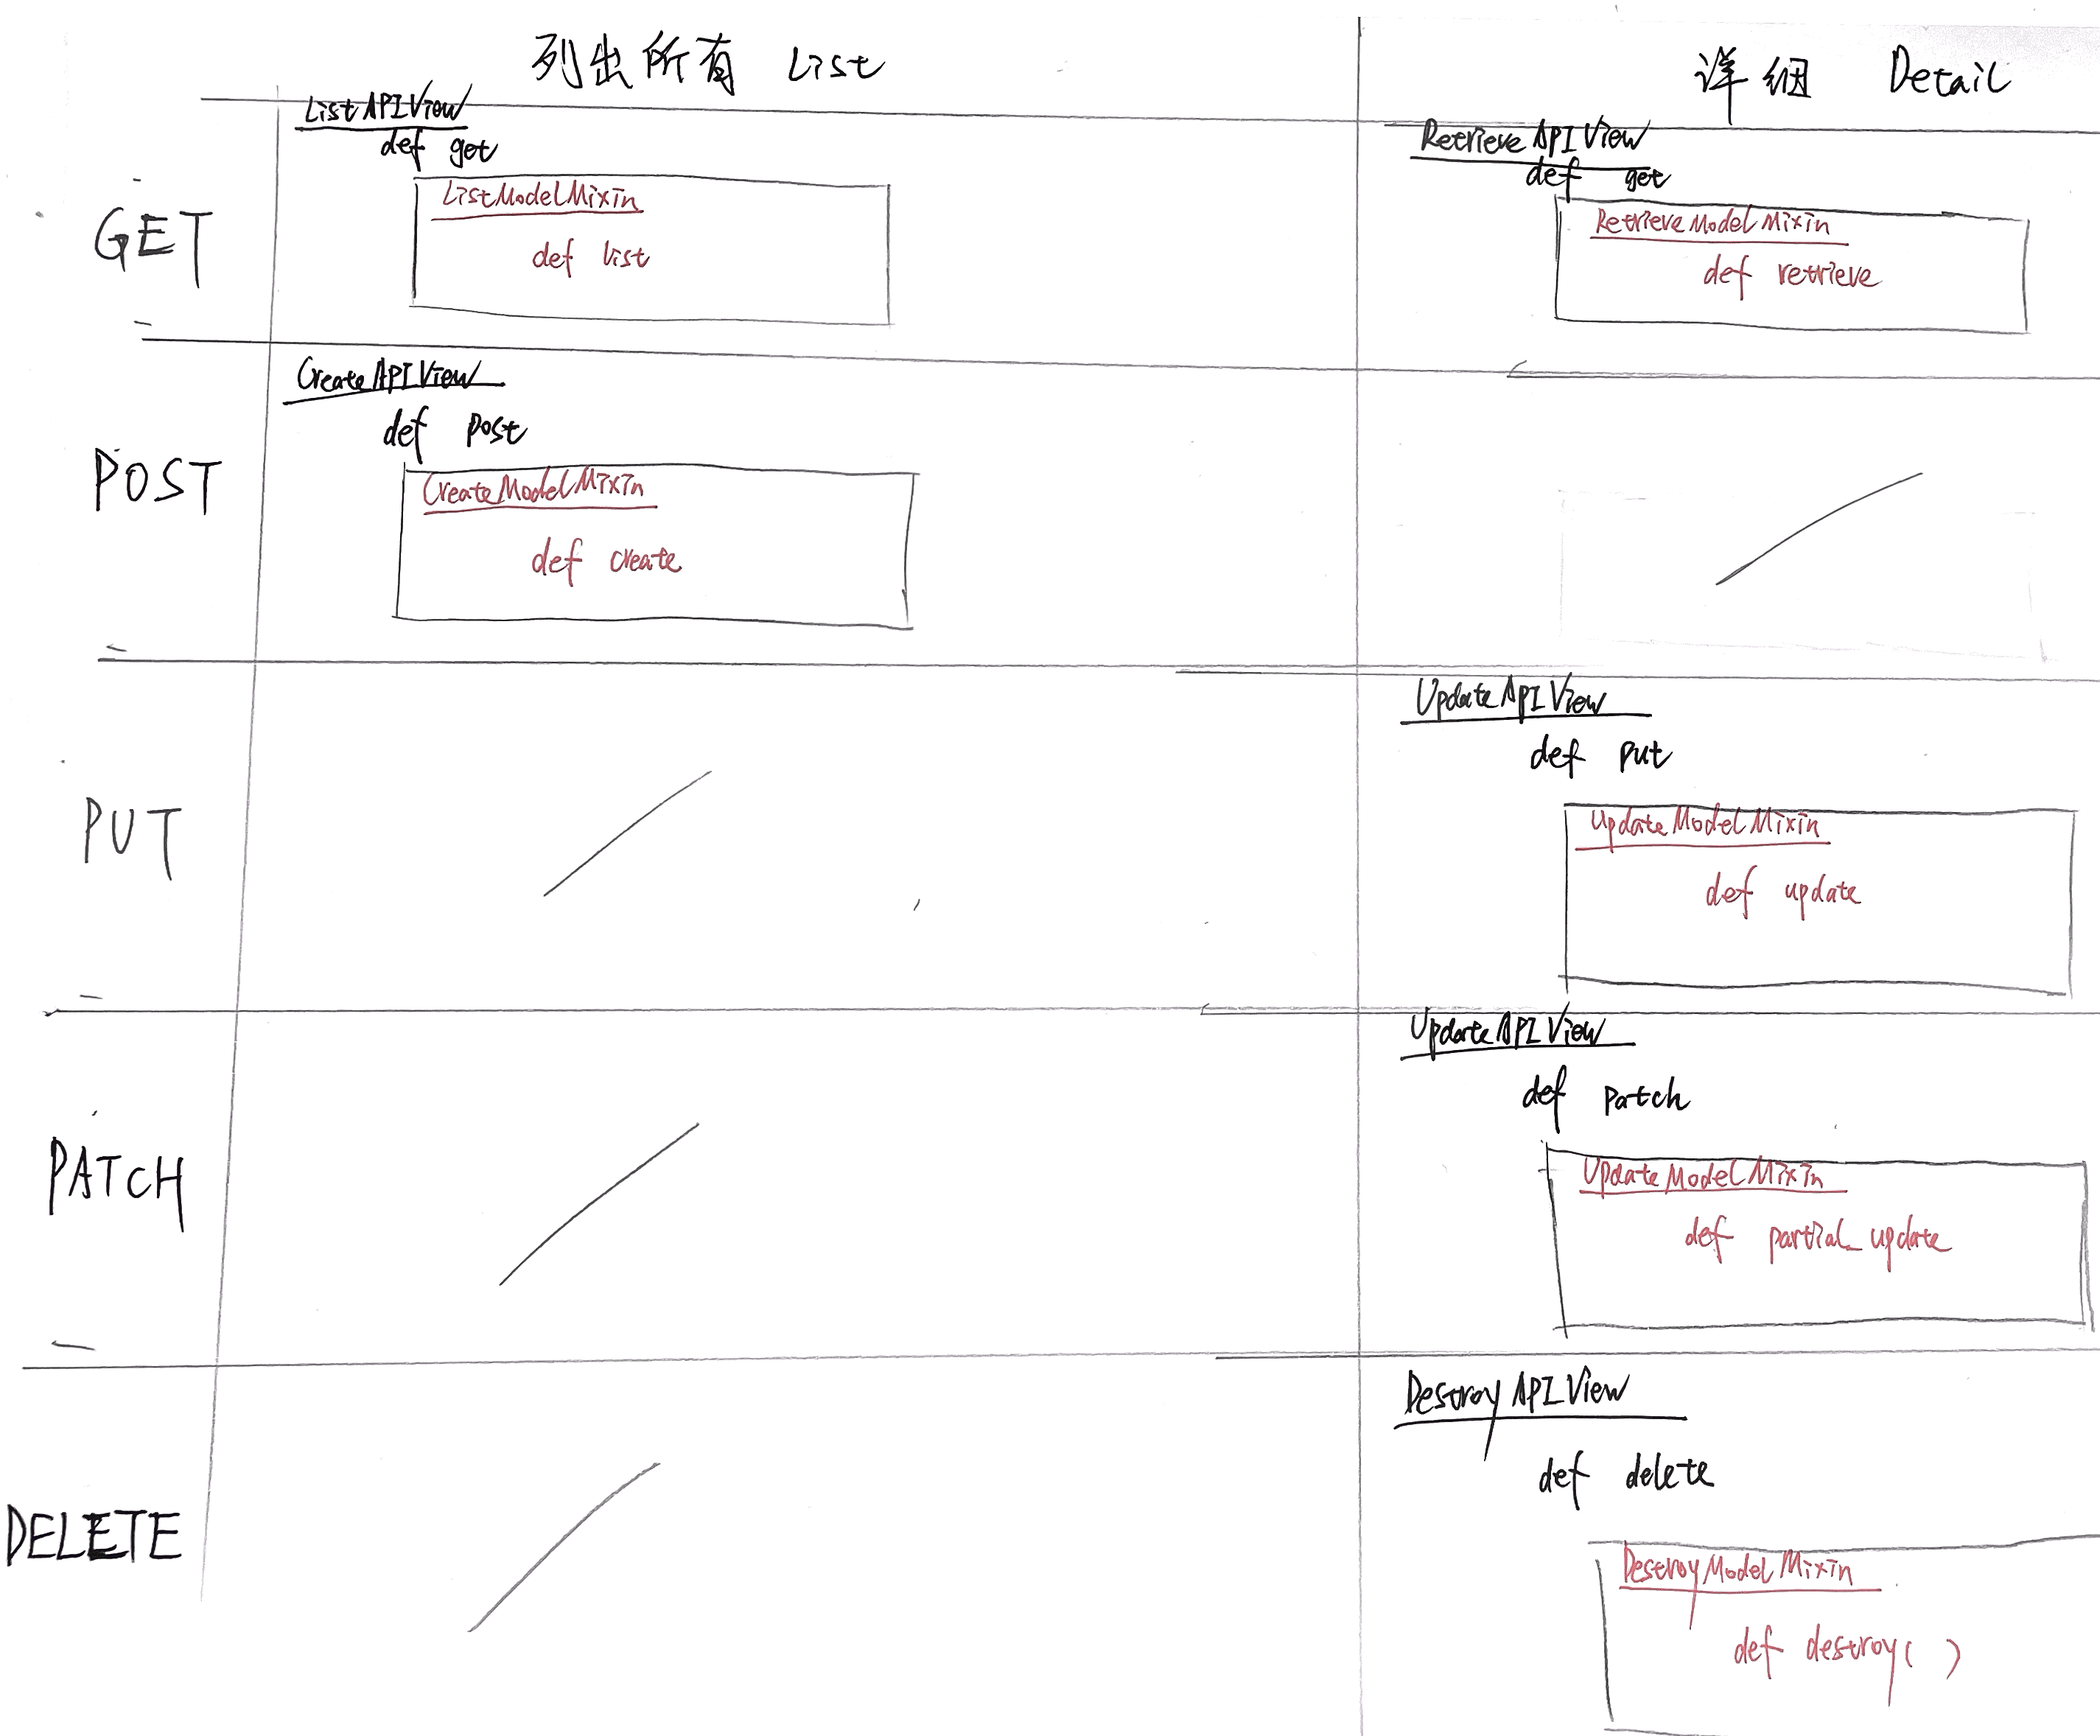 列出所有 List
详细 Detail
ListAPIView
def get
ListModelMixin
def list
RetrieveAPIView
def get
RetrieveModelMixin
def retrieve
GET
CreateAPIView
def post
CreateModelMixin
def create
POST
UpdateAPIView
def put
UpdateModelMixin
def update
PUT
UpdateAPIView
def patch
UpdateModelMixin
def partial_update
PATCH
DestroyAPIView
def delete
DestroyModelMixin
def destroy( )
DELETE